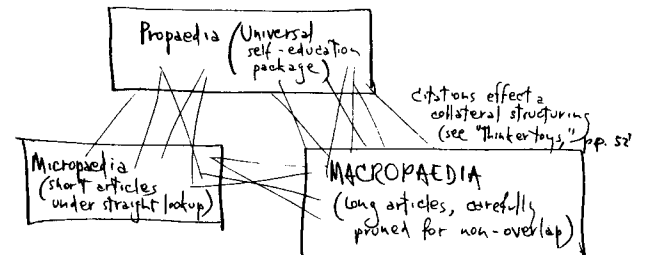 Propaedia (Universal
self-education
package)
citations effect a
collateral structuring
(see "Thinkertoys,"
pp. 52
Micropaedia
(short articles
under straight lookup)
MACROPAEDIA
(Long articles, carefully
pruned for non-overlap)